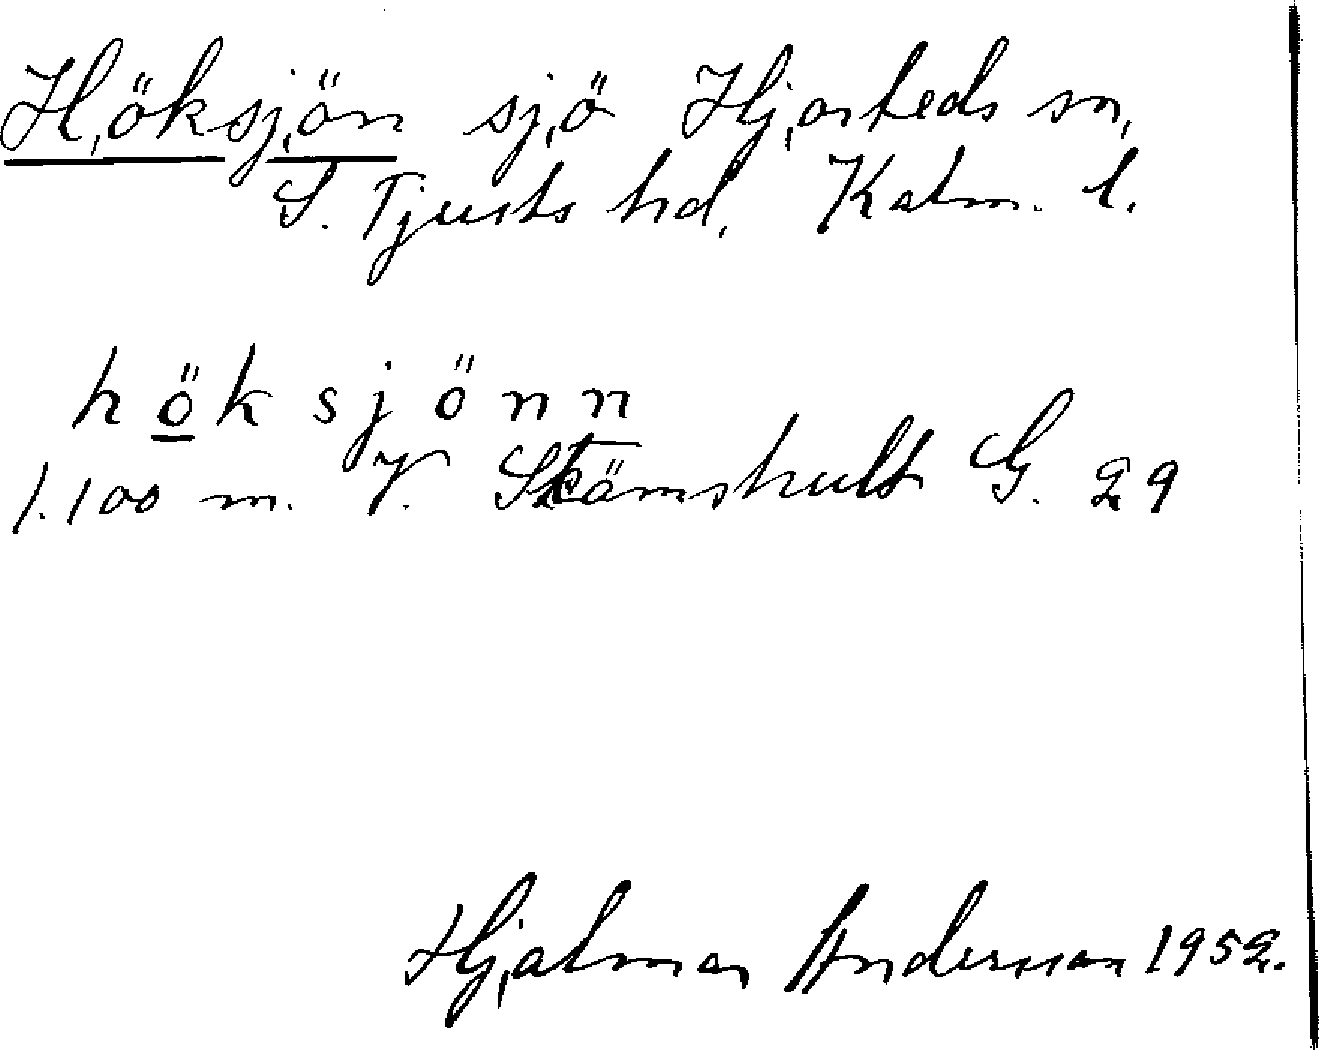 Höksjön sjö Hjorteds sn,
S. Tjusts hd. Kalm. l.
höksjönn
1.100 m. V. Skämshult G. 29
Hjalmar Andersson 1952.